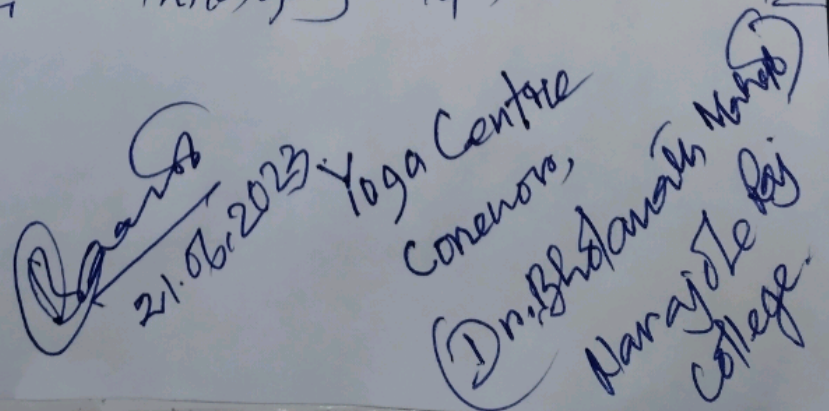 21.06.2023
Yoga Centre
Convenor,
(Dr. Bholanath Mahato)
Narajole Raj
College.